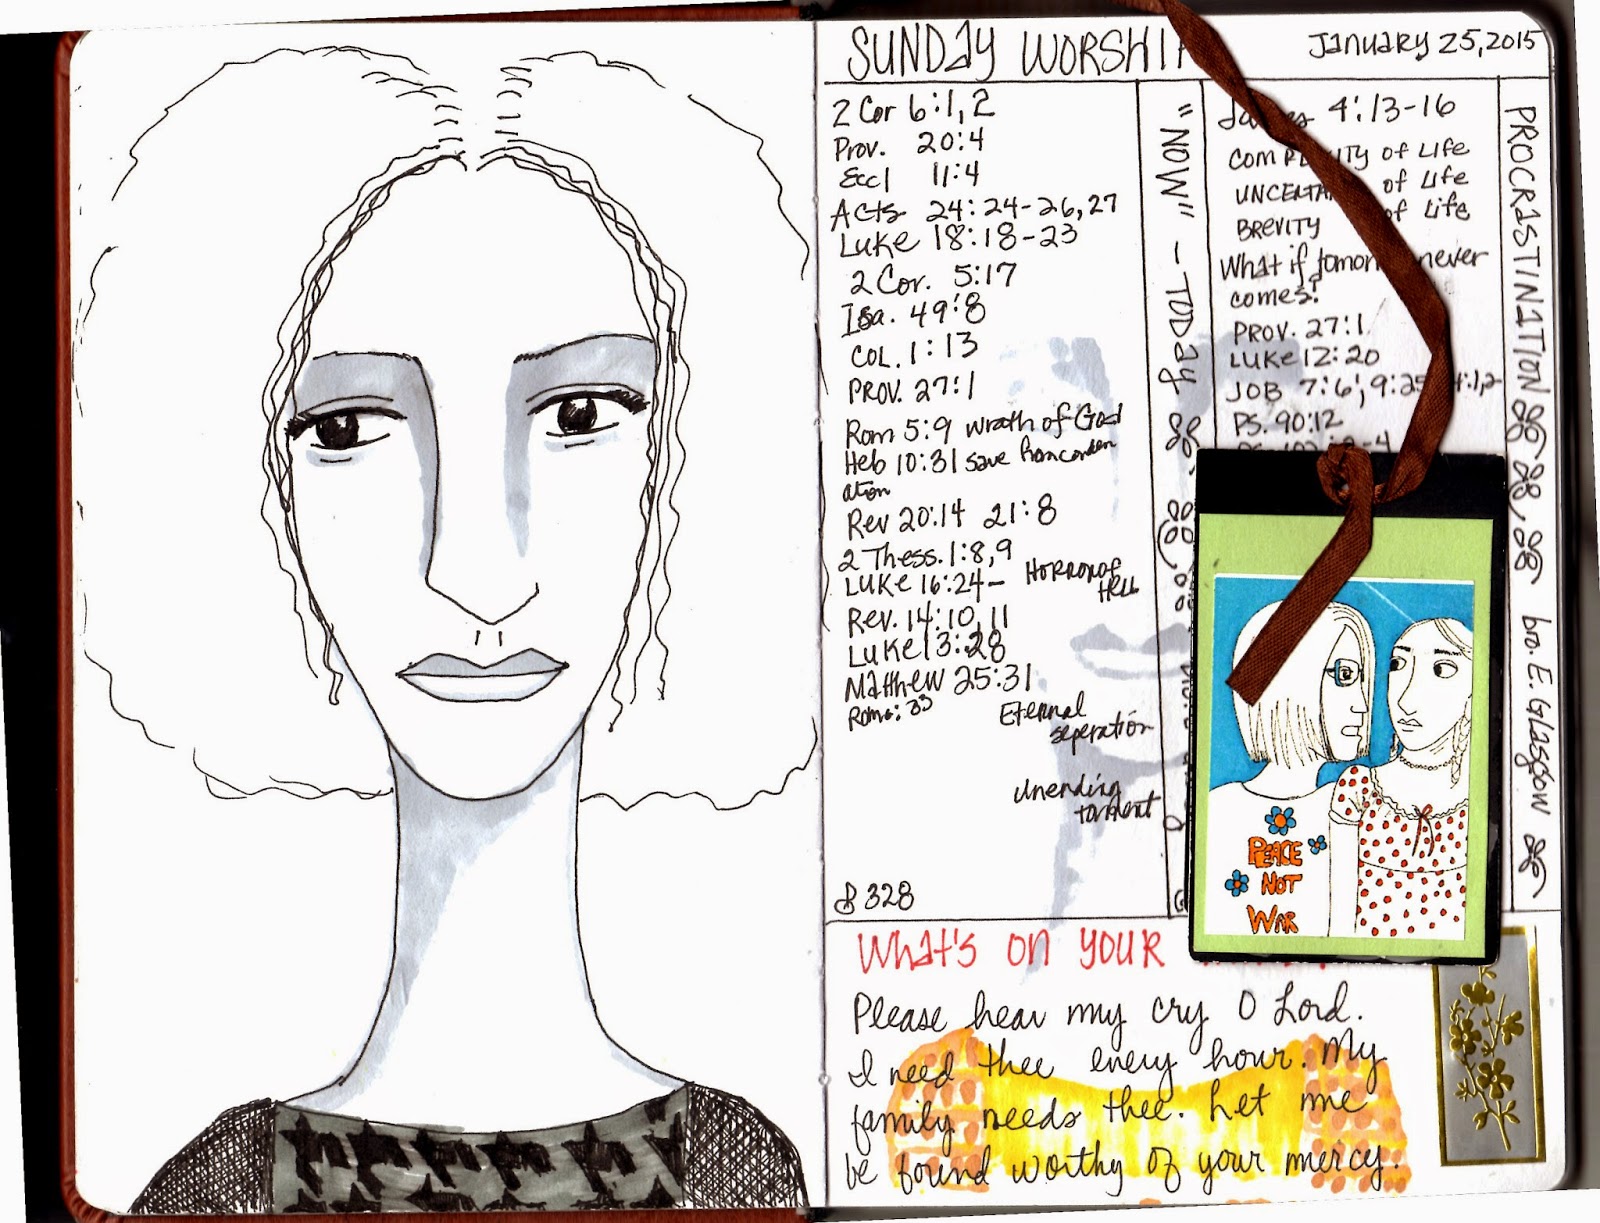 SUNDAY WORSHIP
January 25, 2015
2 Cor 6:1,2
Prov. 20:4
Eccl 11:4
Acts 24:24-26,27
Luke 18:18-23
2 Cor. 5:17
Isa. 49:8
COL. 1:13
PROV. 27:1
Rom 5:9 wrath of God
Heb 10:31 save from condem
ation
Rev 20:14 21:8
2 Thess. 1:8,9
LUKE 16:24- HORROR OF
HELL
Rev. 14:10,11
LUKE 13:28
Matthew 25:31
Eternal
seperation
unending
torment
328
"NOW" - TODAY
4:13-16
of Life
of Life
BREVITY of Life
What if never
comes!
PROV. 27:1
LUKE 12:20
JOB 7:6; 9:25
PS. 90:12
PROCRISTINATION
bro. E. GLASGOW
PEACE
NOT
WAR
What's on your
Please hear my cry O Lord.
I need thee every hour. My
family needs thee. Let me
be found worthy of your mercy.